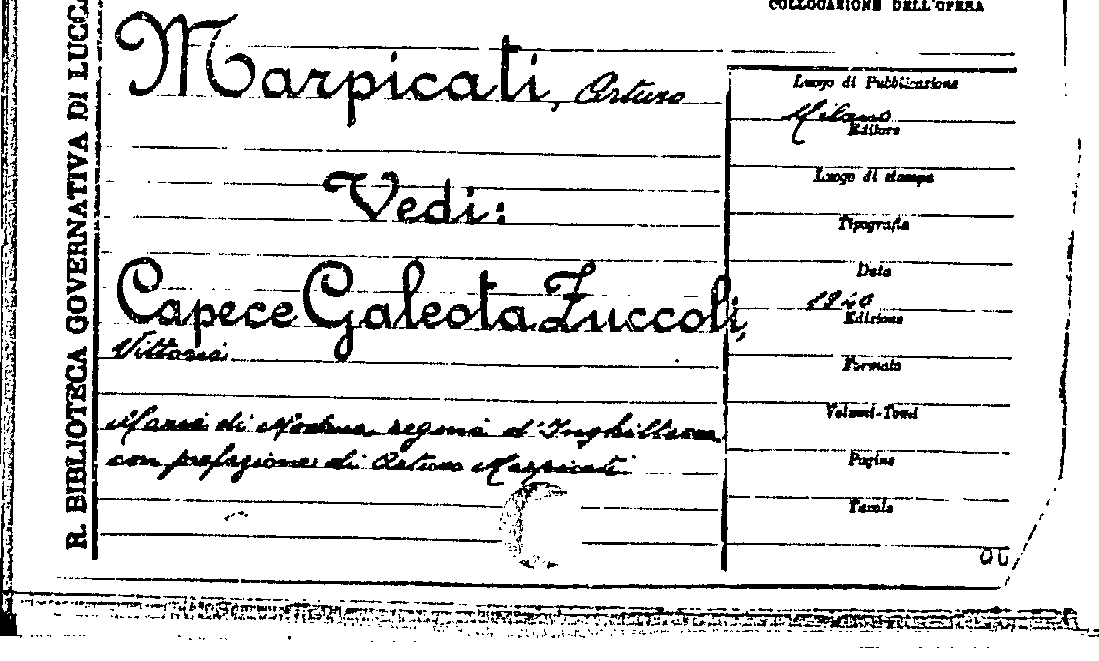 COLLOCAZIONE DELL'OPERA
R. BIBLIOTECA GOVERNATIVA DI LUCCA
Marpicati, Arturo
Vedi:
Capece Galeota Zuccoli,
Vittoria
Maria di Modena regina d'Inghilterra
con prefazione di Arturo Marpicati
Luogo di Pubblicazione
Milano
Editore
Luogo di stampa
Tipografia
Data
1940
Edizione
Formato
Volumi-Tomi
Pagine
Tavole